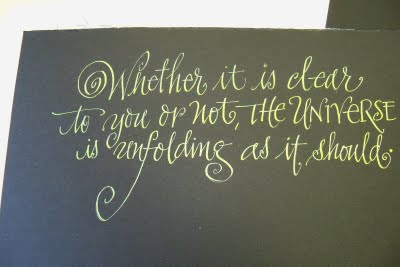 Whether it is clear
to you or not, THE UNIVERSE
is unfolding as it should.